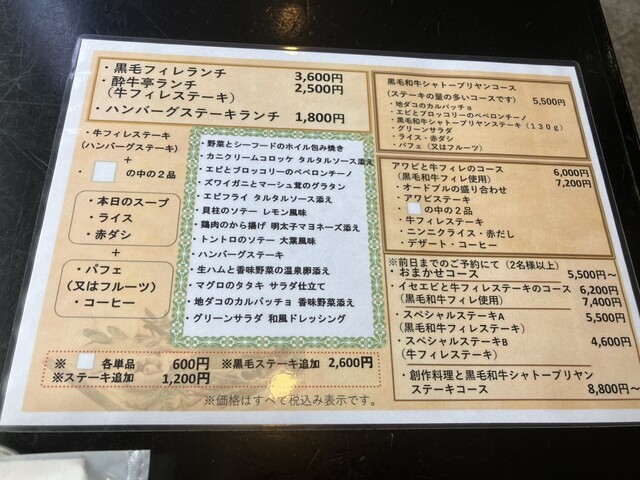 ・黒毛フィレランチ 3,600円
・酔牛亭ランチ 2,500円
(牛フィレステーキ)
・ハンバーグステーキランチ 1,800円
・牛フィレステーキ
(ハンバーグステーキ)
+
・ の中の２品
・本日のスープ
・ライス
・赤ダシ
+
・パフェ
(又はフルーツ)
・コーヒー
・野菜とシーフードのホイル包み焼き
・カニクリームコロッケ タルタルソース添え
・エビとブロッコリーのペペロンチーノ
・ズワイガニとマーシュ茸のグラタン
・エビフライ タルタルソース添え
・貝柱のソテー レモン風味
・鶏肉のから揚げ 明太子マヨネーズ添え
・トントロのソテー 大葉風味
・ハンバーグステーキ
・生ハムと香味野菜の温泉卵添え
・マグロのタタキ サラダ仕立て
・地ダコのカルパッチョ 香味野菜添え
・グリーンサラダ 和風ドレッシング
※ 各単品 600円 ※黒毛ステーキ追加 2,600円
※ステーキ追加 1,200円
※価格はすべて税込み表示です。
黒毛和牛シャトーブリヤンコース
(ステーキの量の多いコースです) 5,500円
・地ダコのカルパッチョ
・エビとブロッコリーのペペロンチーノ
・黒毛和牛シャトーブリヤンステーキ(１３０ｇ)
・グリーンサラダ
・ライス・赤ダシ
・パフェ(又はフルーツ)
アワビと牛フィレのコース 6,000円
(黒毛和牛フィレ使用) 7,200円
・オードブルの盛り合わせ
・アワビステーキ
・ の中の２品
・牛フィレステーキ
・ニンニクライス・赤だし
・デザート・コーヒー
※前日までのご予約にて(2名様以上)
・おまかせコース 5,500円～
・イセエビと牛フィレステーキのコース 6,200円
(黒毛和牛フィレ使用) 7,400円
・スペシャルステーキA 5,500円
(黒毛和牛フィレステーキ)
・スペシャルステーキB 4,600円
(牛フィレステーキ)
・創作料理と黒毛和牛シャトーブリヤン
ステーキコース 8,800円～